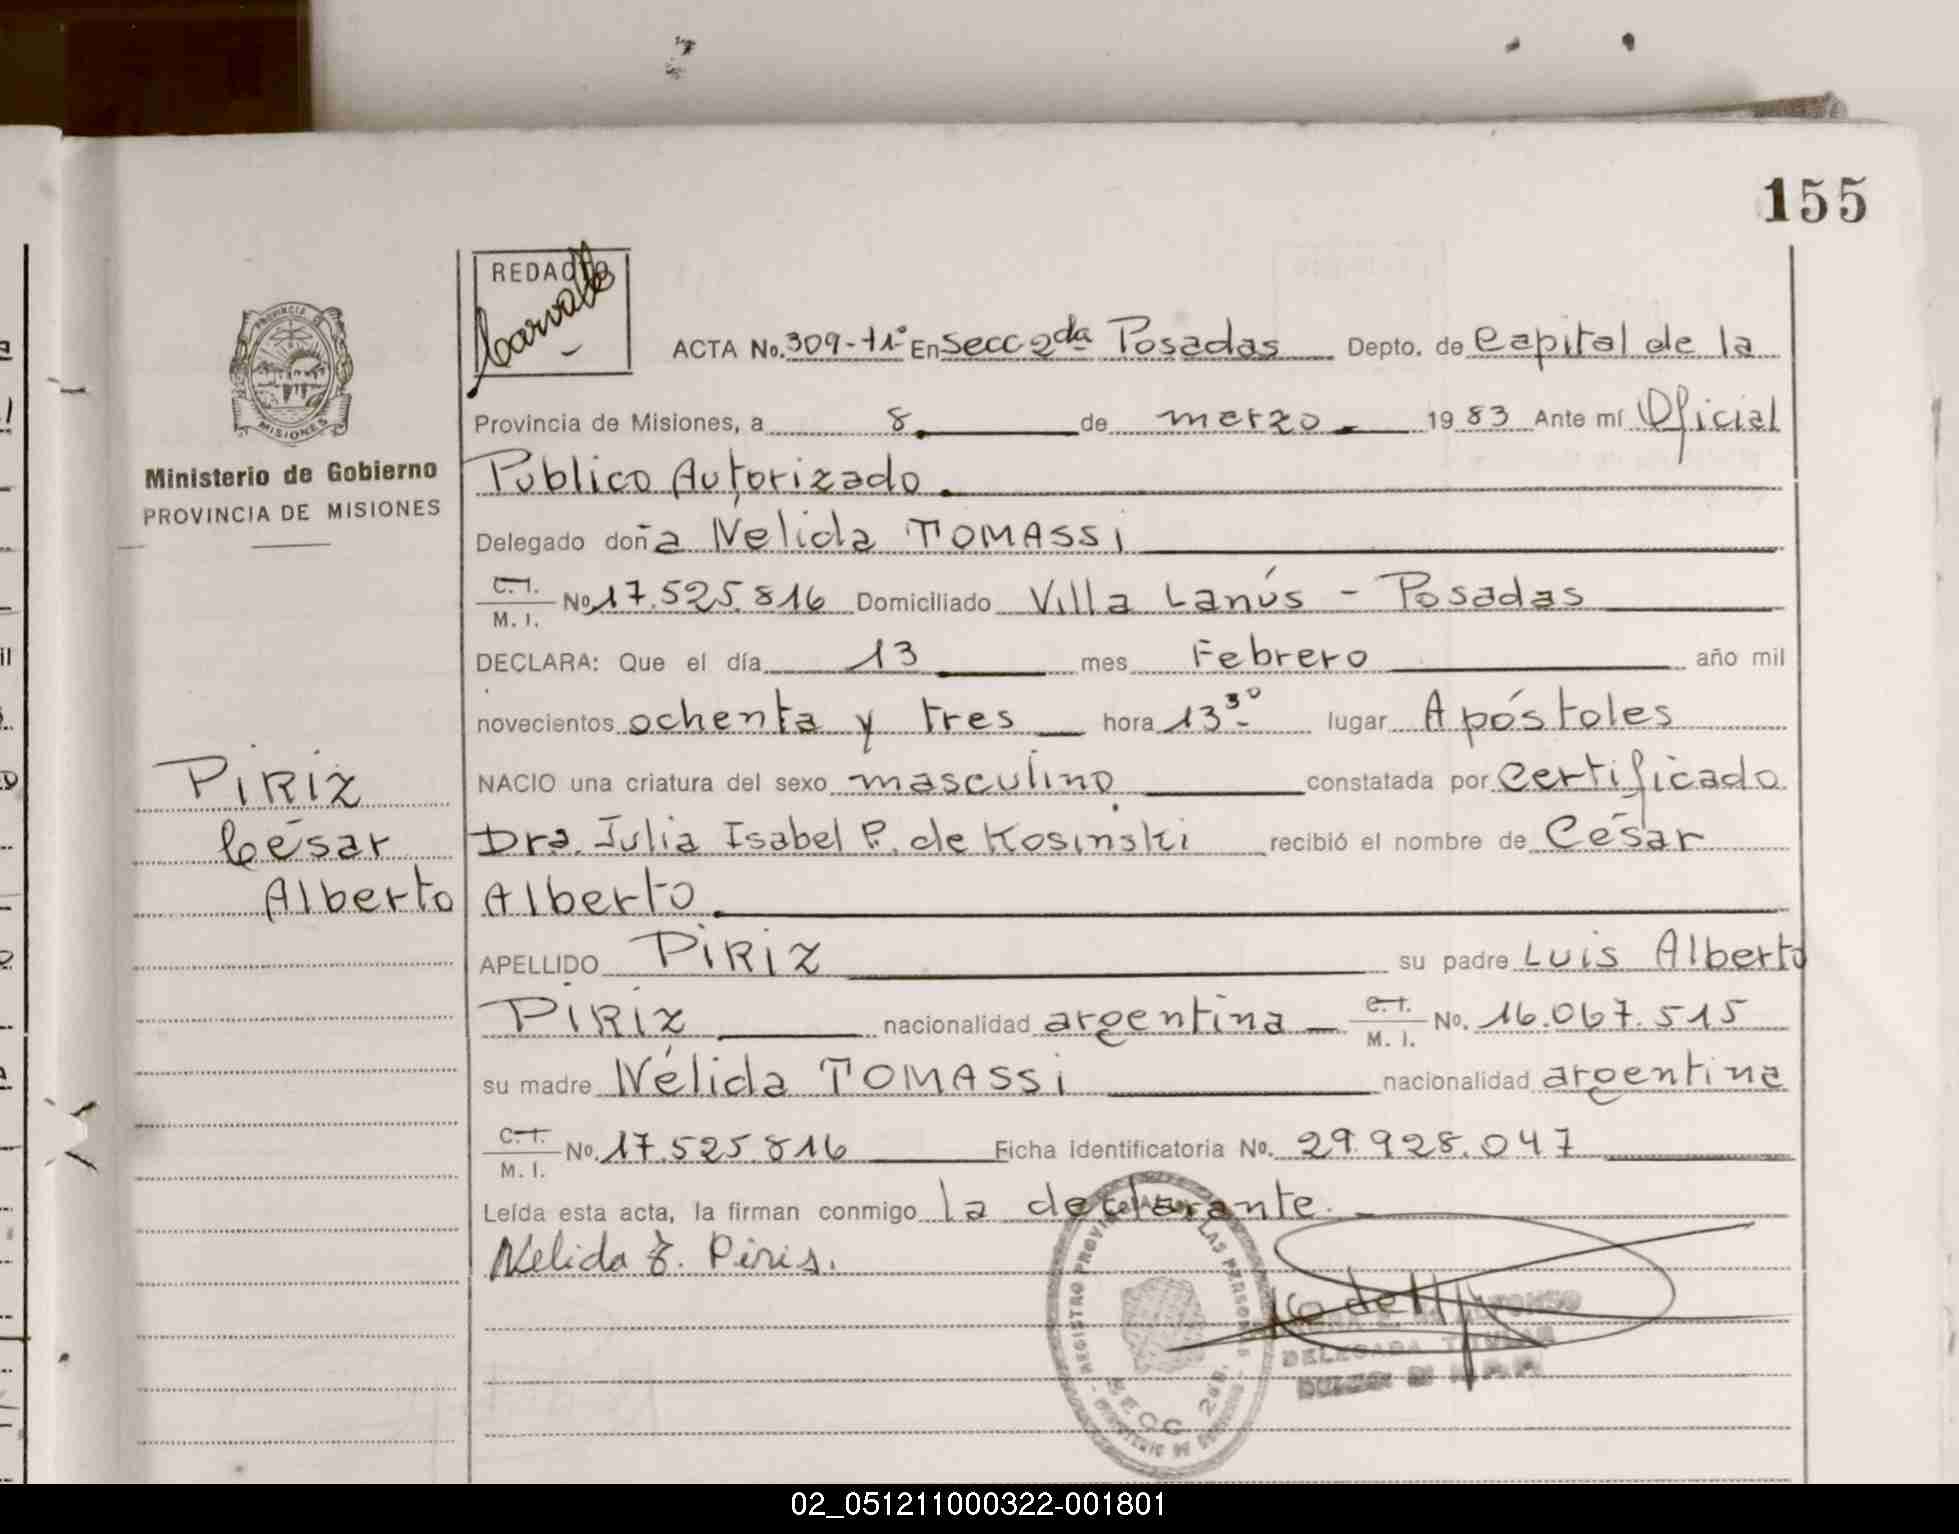 155
REDACTO
Carvallo
PROVINCIA DE
MISIONES
Ministerio de Gobierno
PROVINCIA DE MISIONES
ACTA No. 309-T1º En Secc 2da Posadas Depto. de Capital de la
Provincia de Misiones, a 8 de marzo 1983 Ante mí Oficial
Publico Autorizado
Delegado doña Nelida TOMASSI
C.I.
M. I. No 17.525.816 Domiciliado Villa Lanús - Posadas
DECLARA: Que el día 13 mes Febrero año mil
novecientos ochenta y tres hora 13 30 lugar Apóstoles
NACIO una criatura del sexo masculino constatada por Certificado
Dra. Julia Isabel P. de Kosinski recibió el nombre de César
Alberto
APELLIDO PIRIZ su padre Luis Alberto
PIRIZ nacionalidad argentina C.I.
M. I. No. 16.067.515
su madre Nélida TOMASSI nacionalidad argentina
C.I.
M. I. No. 17.525.816 Ficha Identificatoria No. 29.928.047
Leída esta acta, la firman conmigo la declarante.
Nelida T. Piris.
PIRIZ
César
Alberto
REGISTRO PROVINCIAL LAS PERSONAS
SECC. 2da.
DELEGADA TITULAR
02_051211000322-001801